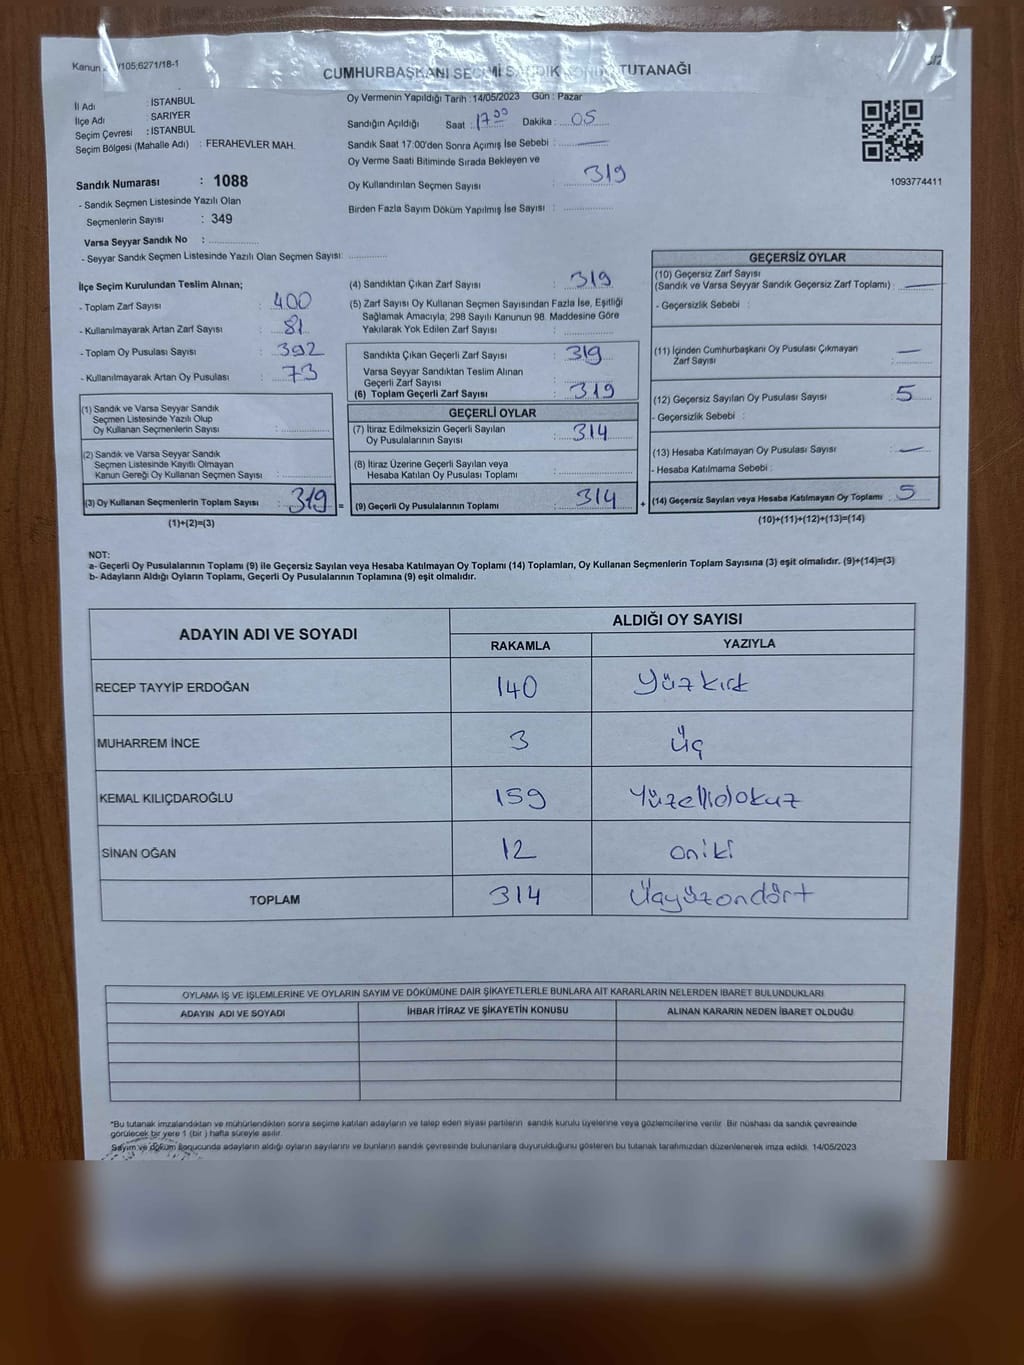 Kanun /105;6271/18-1
CUMHURBAŞKANI SEÇİMİ SANDIK TUTANAĞI
İl Adı : İSTANBUL
İlçe Adı : SARIYER
Seçim Çevresi : İSTANBUL
Seçim Bölgesi (Mahalle Adı) : FERAHEVLER MAH.
Oy Vermenin Yapıldığı Tarih : 14/05/2023 Gün : Pazar
Sandığın Açıldığı Saat : 17 00 Dakika : 05
Sandık Saat 17:00'den Sonra Açımış İse Sebebi :
Oy Verme Saati Bitiminde Sırada Bekleyen ve
Oy Kullandırılan Seçmen Sayısı : 319
Birden Fazla Sayım Döküm Yapılmış İse Sayısı :
1093774411
Sandık Numarası : 1088
- Sandık Seçmen Listesinde Yazılı Olan
Seçmenlerin Sayısı : 349
Varsa Seyyar Sandık No :
- Seyyar Sandık Seçmen Listesinde Yazılı Olan Seçmen Sayısı:
İlçe Seçim Kurulundan Teslim Alınan;
- Toplam Zarf Sayısı : 400
- Kullanılmayarak Artan Zarf Sayısı : 81
- Toplam Oy Pusulası Sayısı : 392
- Kullanılmayarak Artan Oy Pusulası : 73
(1) Sandık ve Varsa Seyyar Sandık
Seçmen Listesinde Yazılı Olup
Oy Kullanan Seçmenlerin Sayısı :
(2) Sandık ve Varsa Seyyar Sandık
Seçmen Listesinde Kayıtlı Olmayan
Kanun Gereği Oy Kullanan Seçmen Sayısı :
(3) Oy Kullanan Seçmenlerin Toplam Sayısı : 319 =
(1)+(2)=(3)
(4) Sandıktan Çıkan Zarf Sayısı : 319
(5) Zarf Sayısı Oy Kullanan Seçmen Sayısından Fazla İse, Eşitliği
Sağlamak Amacıyla, 298 Sayılı Kanunun 98. Maddesine Göre
Yakılarak Yok Edilen Zarf Sayısı :
Sandıkta Çıkan Geçerli Zarf Sayısı : 319
Varsa Seyyar Sandıktan Teslim Alınan
Geçerli Zarf Sayısı :
(6) Toplam Geçerli Zarf Sayısı : 319
GEÇERLİ OYLAR
(7) İtiraz Edilmeksizin Geçerli Sayılan
Oy Pusulalarının Sayısı : 314
(8) İtiraz Üzerine Geçerli Sayılan veya
Hesaba Katılan Oy Pusulası Toplamı :
(9) Geçerli Oy Pusulalarının Toplamı : 314 +
GEÇERSİZ OYLAR
(10) Geçersiz Zarf Sayısı
(Sandık ve Varsa Seyyar Sandık Geçersiz Zarf Toplamı) :
- Geçersizlik Sebebi :
(11) İçinden Cumhurbaşkanı Oy Pusulası Çıkmayan
Zarf Sayısı :
(12) Geçersiz Sayılan Oy Pusulası Sayısı : 5
- Geçersizlik Sebebi :
(13) Hesaba Katılmayan Oy Pusulası Sayısı :
- Hesaba Katılmama Sebebi :
(14) Geçersiz Sayılan veya Hesaba Katılmayan Oy Toplamı : 5
(10)+(11)+(12)+(13)=(14)
NOT:
a- Geçerli Oy Pusulalarının Toplamı (9) ile Geçersiz Sayılan veya Hesaba Katılmayan Oy Toplamı (14) Toplamları, Oy Kullanan Seçmenlerin Toplam Sayısına (3) eşit olmalıdır. (9)+(14)=(3)
b- Adayların Aldığı Oyların Toplamı, Geçerli Oy Pusulalarının Toplamına (9) eşit olmalıdır.
ADAYIN ADI VE SOYADI
ALDIĞI OY SAYISI
RAKAMLA YAZIYLA
RECEP TAYYİP ERDOĞAN 140 yüzkırk
MUHARREM İNCE 3 üç
KEMAL KILIÇDAROĞLU 159 Yüzellidokuz
SİNAN OĞAN 12 oniki
TOPLAM 314 Üçyüzondört
OYLAMA İŞ VE İŞLEMLERİNE VE OYLARIN SAYIM VE DÖKÜMÜNE DAİR ŞİKAYETLERLE BUNLARA AİT KARARLARIN NELERDEN İBARET BULUNDUKLARI
ADAYIN ADI VE SOYADI İHBAR İTİRAZ VE ŞİKAYETİN KONUSU ALINAN KARARIN NEDEN İBARET OLDUĞU
*Bu tutanak imzalandıktan ve mühürlendikten sonra seçime katılan adayların ve talep eden siyasi partilerin sandık kurulu üyelerine veya gözlemcilerine verilir. Bir nüshası da sandık çevresinde
görülecek bir yere 1 (bir ) hafta süreyle asılır.
Sayım ve döküm sonucunda adayların aldığı oyların sayılarını ve bunların sandık çevresinde bulunanlara duyurulduğunu gösteren bu tutanak tarafımızdan düzenlenerek imza edildi. 14/05/2023